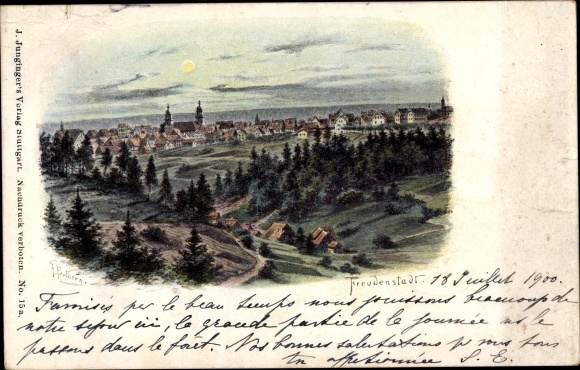 J. Junginger's Verlag Stuttgart. Nachdruck verboten. No. 15a.
Freudenstadt. 18 Juillet 1900.
Favorisés par le beau temps nous jouissons beaucoup de
notre séjour ici, la grande partie de la journée ns le
passons dans le forêt. Nos bonnes salutations pr vous tous
affectionnée S. E.